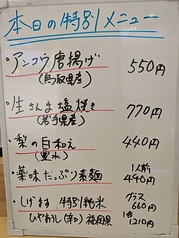 本日の特別メニュー
・アンコウ唐揚げ 550円
(鳥取県産)
・生さんま塩焼き 770円
(岩手県産)
・梨の白和え 440円
(豊水)
・薬味たっぷり素麺 1人前 490円
・しげます 特別純米 グラス 660円
ひやおろし (和) 福岡県 1合 1210円